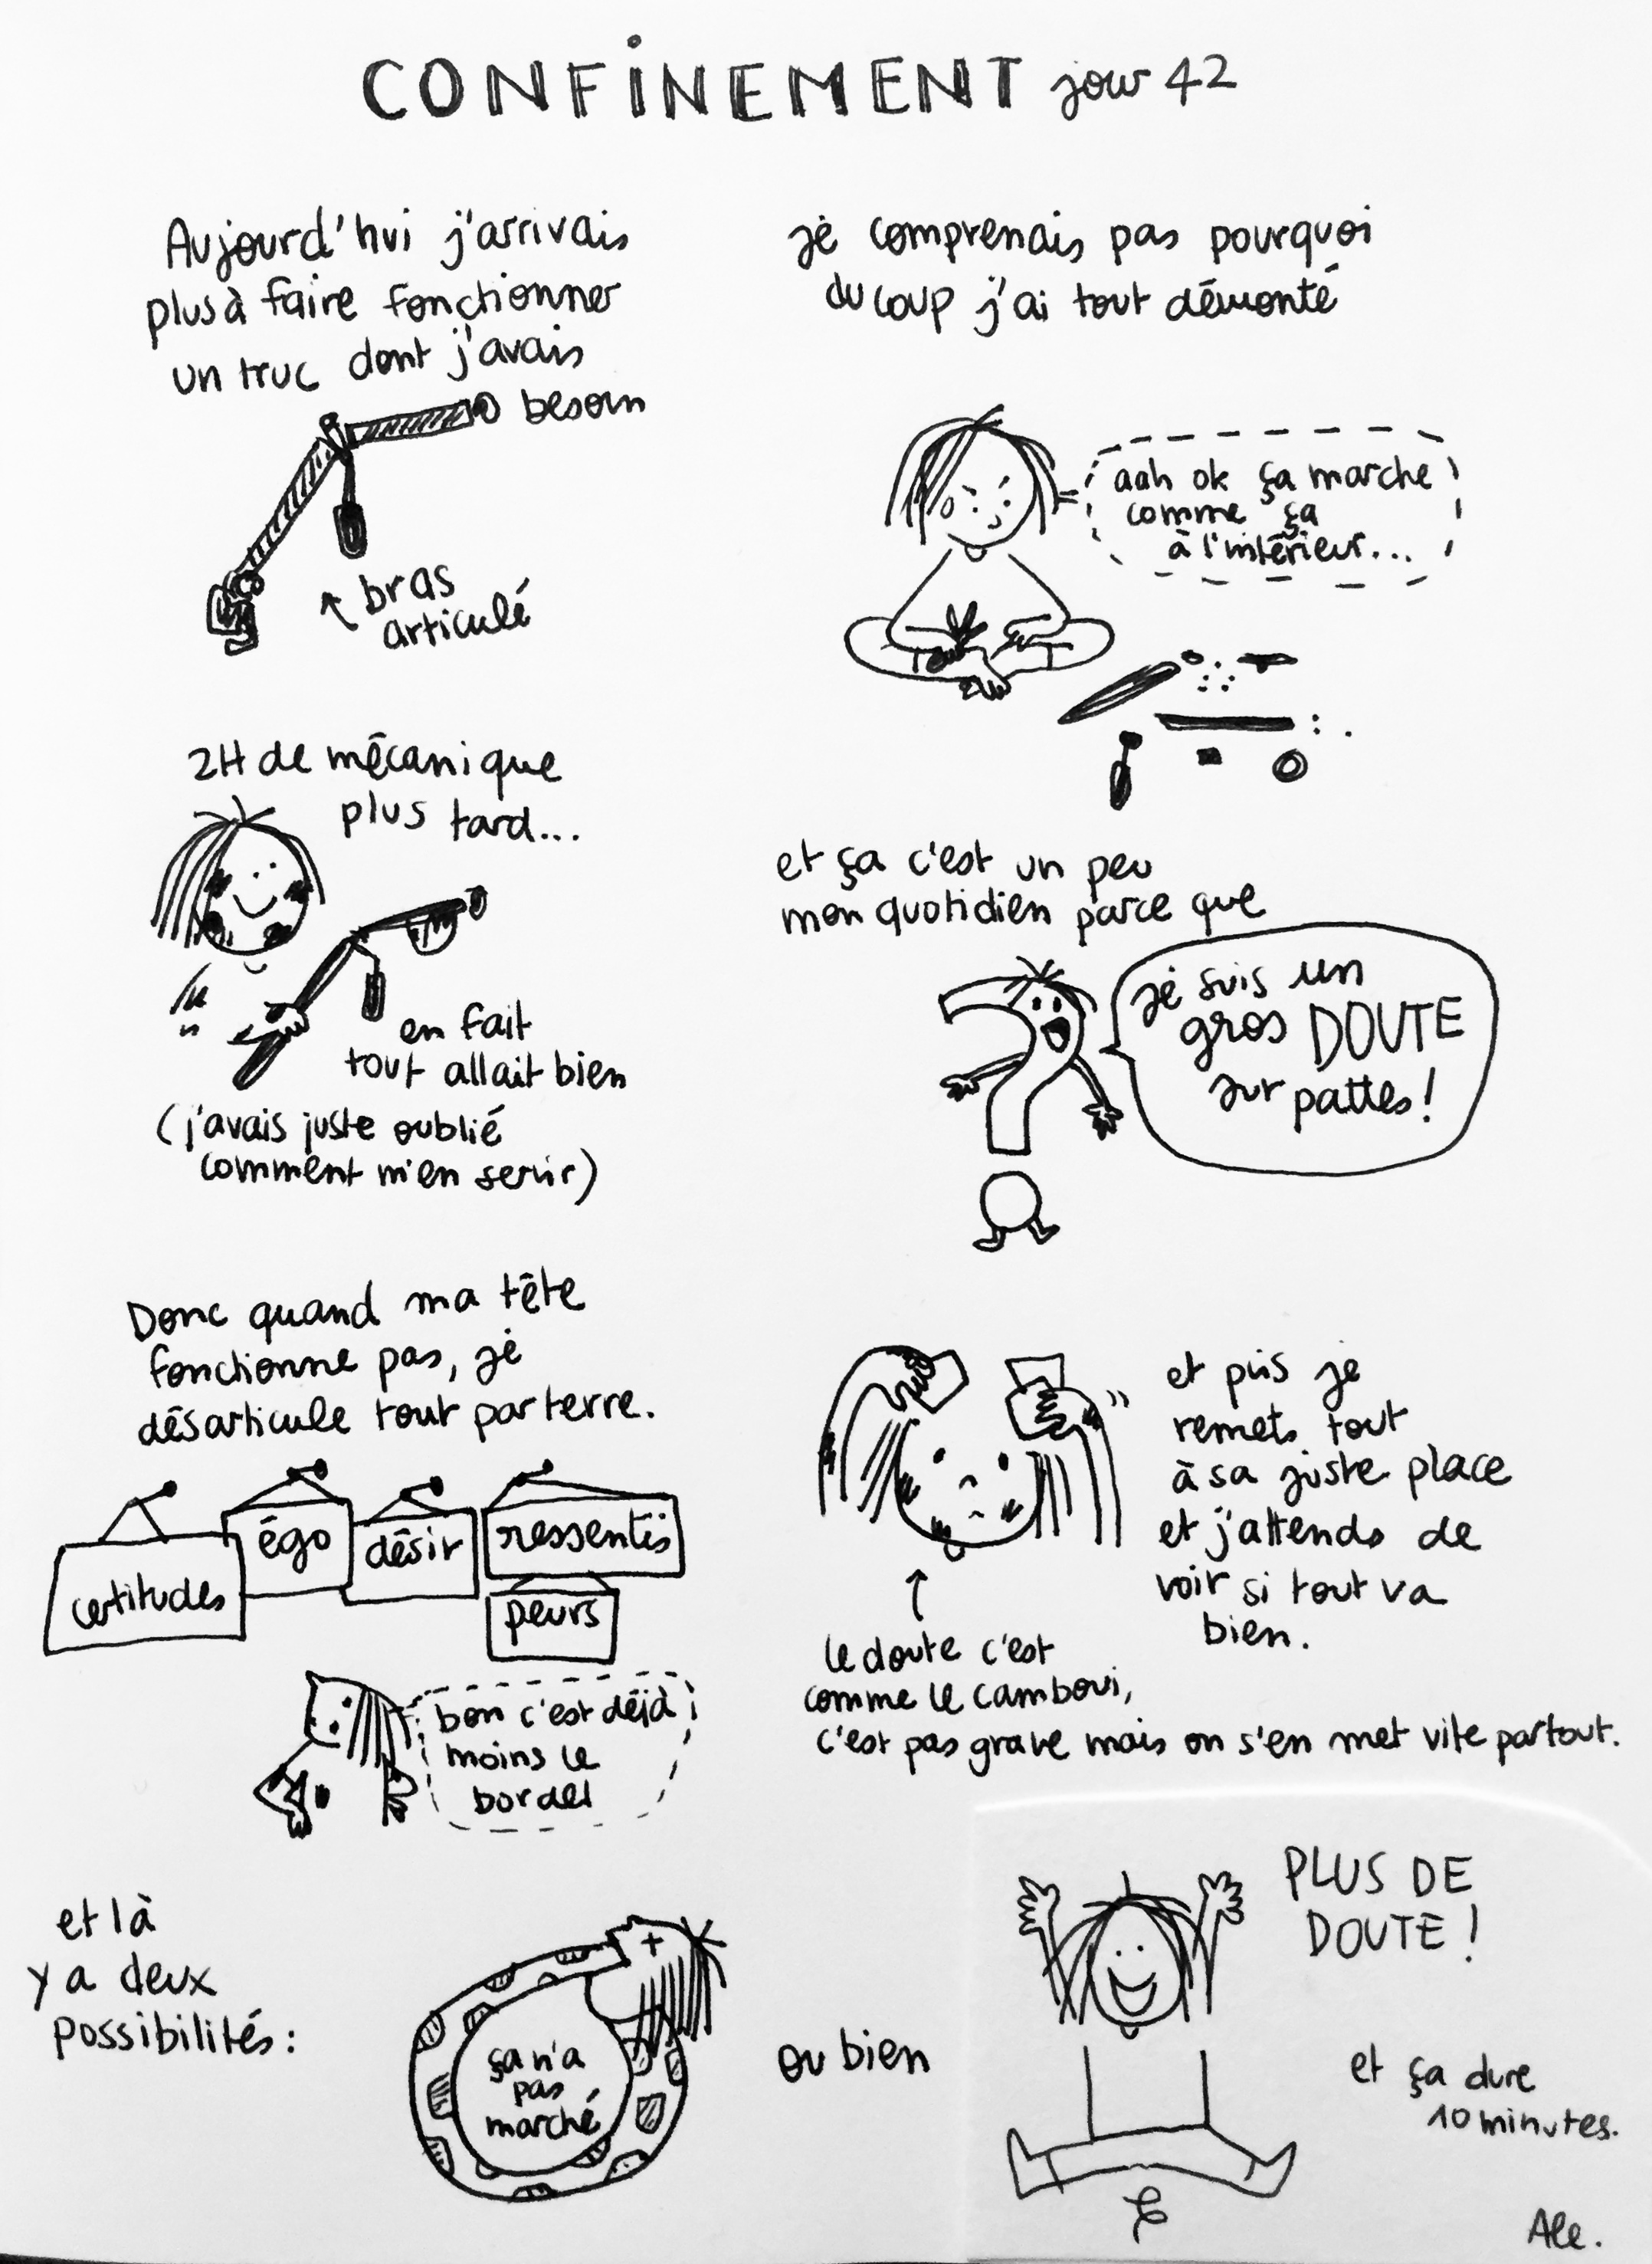 CONFINEMENT jour 42
Aujourd'hui j'arrivais
plus à faire fonctionner
un truc dont j'avais
besoin
bras
articulé
je comprenais pas pourquoi
du coup j'ai tout démonté
aah ok ça marche
comme ça
à l'intérieur...
2H de mécanique
plus tard...
en fait
tout allait bien
(j'avais juste oublié
comment m'en servir)
et ça c'est un peu
mon quotidien parce que
je suis un
gros DOUTE
sur pattes!
Donc quand ma tête
fonctionne pas, je
désarticule tout par terre.
certitudes
égo
désir
ressentis
peurs
bon c'est déjà
moins le
bordel
et puis je
remets tout
à sa juste place
et j'attends de
voir si tout va
bien.
le doute c'est
comme le camboui,
c'est pas grave mais on s'en met vite partout.
et là
y a deux
possibilités:
ça n'a
pas
marché
ou bien
PLUS DE
DOUTE!
et ça dure
10 minutes.
Ale.